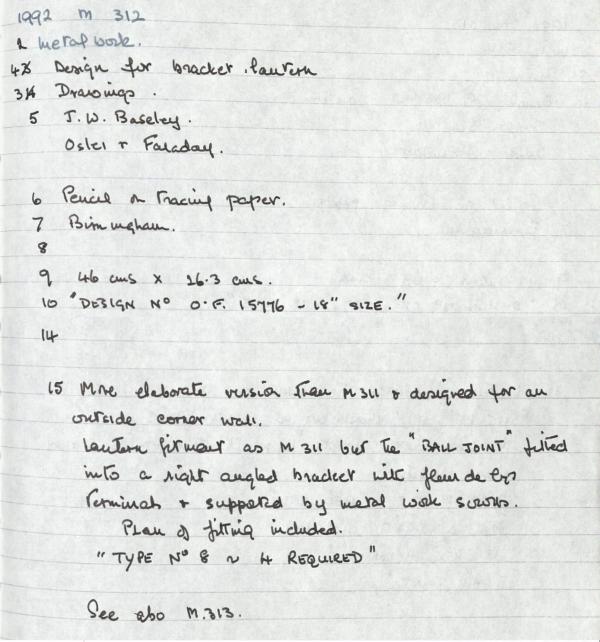 1992 M 312
1 Metal work.
4 Design for bracket lantern
3 Drawings.
5 J.W. Baseley.
Osler + Faraday.
6 Pencil on Tracing paper.
7 Birmingham.
8
9 46 cms x 26.3 cms.
10 "DESIGN No O.F. 15776 - 18" SIZE."
14
15 More elaborate version than M311 & designed for an
outside corner wall.
Lantern fitment as M 311 but the "BALL JOINT" fitted
into a right angled bracket with fleur de lys
terminals + supported by metal work scrolls.
Plan of fitting included.
"TYPE No 8 ~ 4 REQUIRED"
See also M.313.